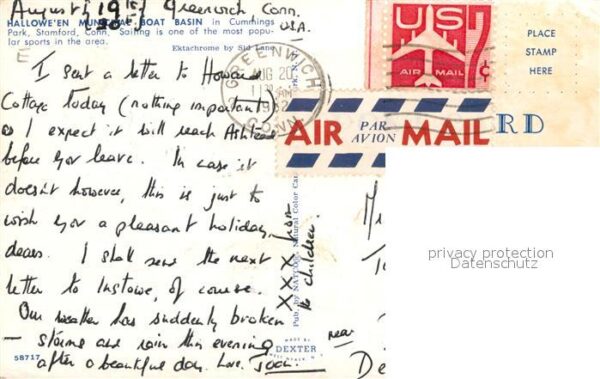 August 19th Greenwich Conn.
USA.
HALLOWE'EN MUNICIPAL BOAT BASIN in Cummings
Park, Stamford, Conn. Sailing is one of the most popu-
lar sports in the area.
Ektachrome by Sid Lane
I sent a letter to Howard
Cottage today (nothing important)
so I expect it will reach Ashtead
before you leave. In case it
doesn't however, this is just to
wish you a pleasant holiday,
dears. I shall send the next
letter to Instowe, of course.
Our weather has suddenly broken
— storms and rain this evening
after a beautiful day. Love. Joan.
XXX from
the children.
58717
Pub. by NATCO, Natural Color Car
MADE BY
DEXTER
GREENWICH
AUG 20
1962
CONN.
US
AIR MAIL
7¢
PLACE
STAMP
HERE
AIR PAR AVION MAIL
RD
near
De
privacy protection
Datenschutz